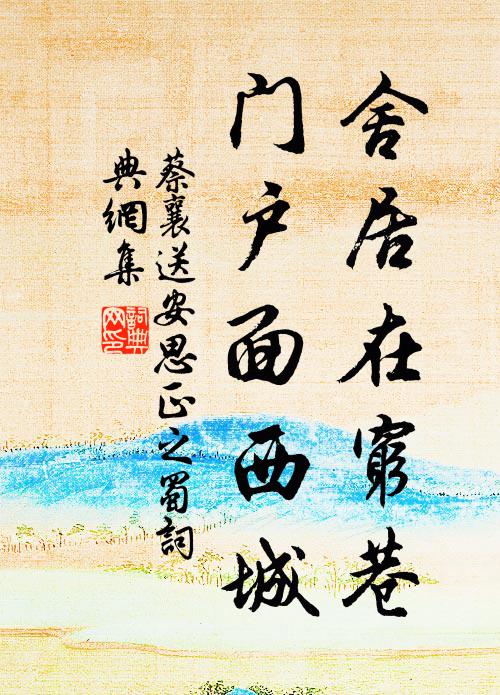 舍居在窮巷
门户面西城
蔡襄送安思正之蜀詞
典網集
詞典网印